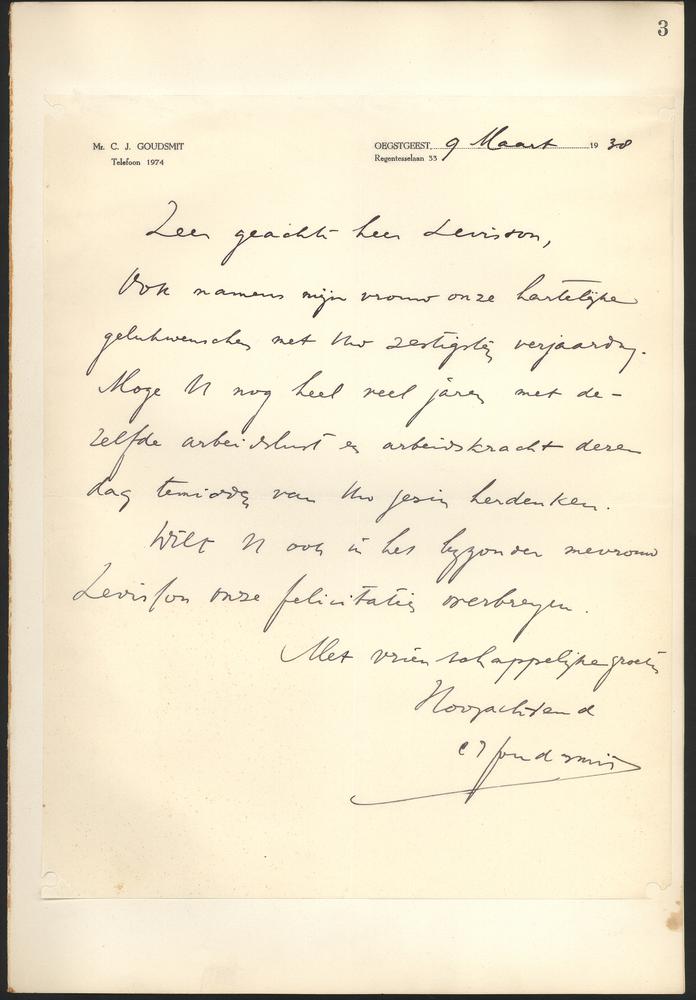 3
Mr. C. J. GOUDSMIT
Telefoon 1974
OEGSTGEEST, 9 Maart 1938
Regentesselaan 33
Zeer geachte heer Levisson,
Ook namens mijn vrouw onze hartelijke
gelukwenschen met Uw zestigsten verjaardag.
Moge U nog heel veel jaren met de-
zelfde arbeidslust en arbeidskracht dezen
dag temidden van Uw gezin herdenken.
Wilt U ook in het byzonder mevrouw
Levisson onze felicitaties overbrengen.
Met vriendschappelijke groeten
Hoogachtend
C J Goudsmit